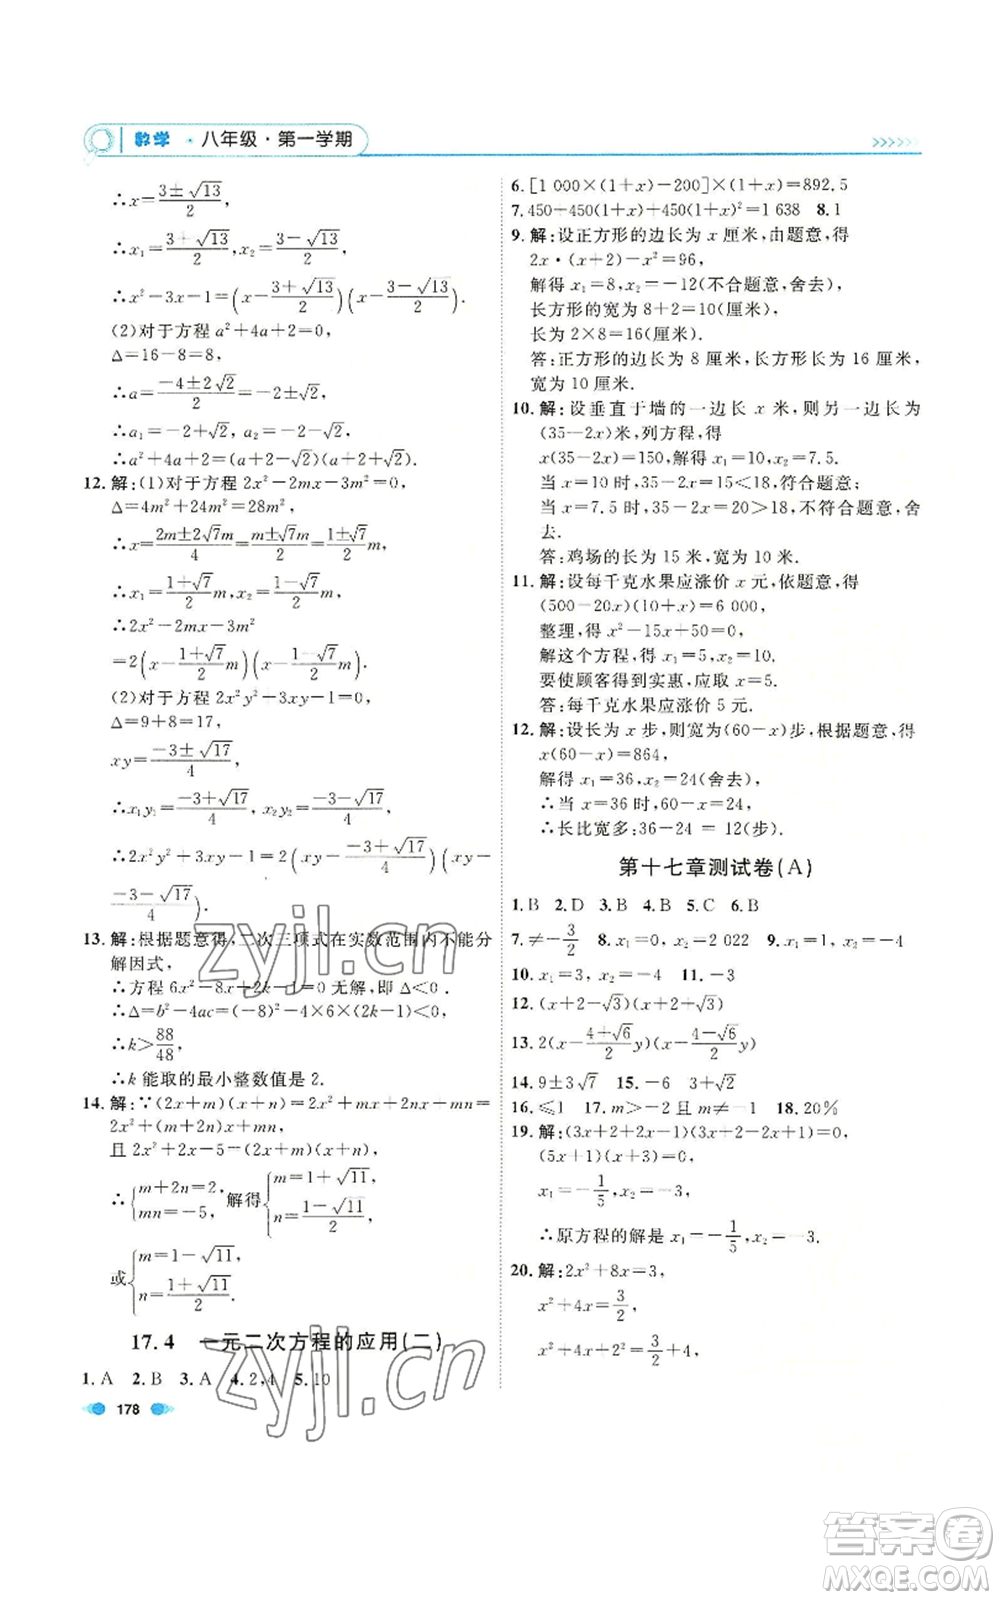 数学 · 八年级 · 第一学期
∴x=(3±√13)/2,
∴x₁=(3+√13)/2,x₂=(3-√13)/2,
∴x²-3x-1=(x-(3+√13)/2)(x-(3-√13)/2).
(2)对于方程 a²+4a+2=0,
Δ=16-8=8,
∴a=(-4±2√2)/2=-2±√2,
∴a₁=-2+√2, a₂=-2-√2,
∴a²+4a+2=(a+2-√2)(a+2+√2).
12. 解:(1)对于方程 2x²-2mx-3m²=0,
Δ=4m²+24m²=28m²,
∴x=(2m±2√7m)/4=(m±√7m)/2,
∴x₁=(1+√7)/2m,x₂=(1-√7)/2m,
∴2x²-2mx-3m²
=2(x-(1+√7)/2m)(x-(1-√7)/2m).
(2)对于方程 2x²y²+3xy-1=0,
Δ=9+8=17,
xy=(-3±√17)/4,
∴x₁y₁=(-3+√17)/4,x₂y₂=(-3-√17)/4,
∴2x²y²+3xy-1=2(xy-(-3+√17)/4)(xy-
(-3-√17)/4).
13. 解:根据题意得,二次三项式在实数范围内不能分
解因式,
∴方程 6x²-8x+2k-1=0 无解,即 Δ<0.
∴Δ=b²-4ac=(-8)²-4×6×(2k-1)<0,
∴k>88/48
∴k 能取的最小整数值是 2.
14. 解:∵(2x+m)(x+n)=2x²+mx+2nx+mn=
且 2x²+2x-5=(2x+m)(x+n),
∴{m+2n=2, mn=-5, 解得{m=1+√11, n=(1-√11)/2,
或{m=1-√11, n=(1+√11)/2.
17.4 一元二次方程的应用(二)
1. A 2. B 3. A 4. 2,4 5. 10
178
6. [1 000×(1+x)-200]×(1+x)=892.5
7. 450+450(1+x)+450(1+x)²=1 638 8. 1
9. 解:设正方形的边长为 x 厘米,由题意,得
2x·(x+2)-x²=96,
解得 x₁=8,x₂=-12(不合题意,舍去),
长方形的宽为 8+2=10(厘米),
长为 2×8=16(厘米).
答:正方形的边长为 8 厘米,长方形长为 16 厘米,
宽为 10 厘米.
10. 解:设垂直于墙的一边长 x 米,则另一边长为
(35-2x)米,列方程,得
x(35-2x)=150,解得 x₁=10,x₂=7.5.
当 x=10 时,35-2x=15<18,符合题意;
当 x=7.5 时,35-2x=20>18,不符合题意,舍
去.
答:鸡场的长为 15 米,宽为 10 米.
11. 解:设每千克水果应涨价 x 元,依题意,得
(500-20x)(10+x)=6 000,
整理,得 x²-15x+50=0,
解这个方程,得 x₁=5,x₂=10.
要使顾客得到实惠,应取 x=5.
答:每千克水果应涨价 5 元.
12. 解:设长为 x 步,则宽为(60-x)步,根据题意,得
x(60-x)=864,
解得 x₁=36,x₂=24(舍去),
∴当 x=36 时,60-x=24,
∴长比宽多:36-24 = 12(步).
第十七章测试卷(A)
1. B 2. D 3. B 4. B 5. C 6. B
7. ≠-3/2 8. x₁=0,x₂=2 022 9. x₁=1,x₂=-4
10. x₁=3,x₂=-4 11. -3
12. (x+2-√3)(x+2+√3)
13. 2(x-(4+√6)/2y)(x-(4-√6)/2y)
14. 9±3√7 15. -4
16. ≤1 17. m>-2 且 m≠-1 18. 20%
19. 解:(3x+2+2x-1)(3x+2-2x+1)=0,
(5x+1)(x+3)=0,
x₁=-1/5,x₂=-3,
∴原方程的解是 x₁=-1/5,x₂=-3.
20. 解:2x²+8x=3,
x²+4x=3/2,
x²+4x+2²=3/2+4,
zyjl.cn
zyjl.cn
答案卷
MXQE.COM